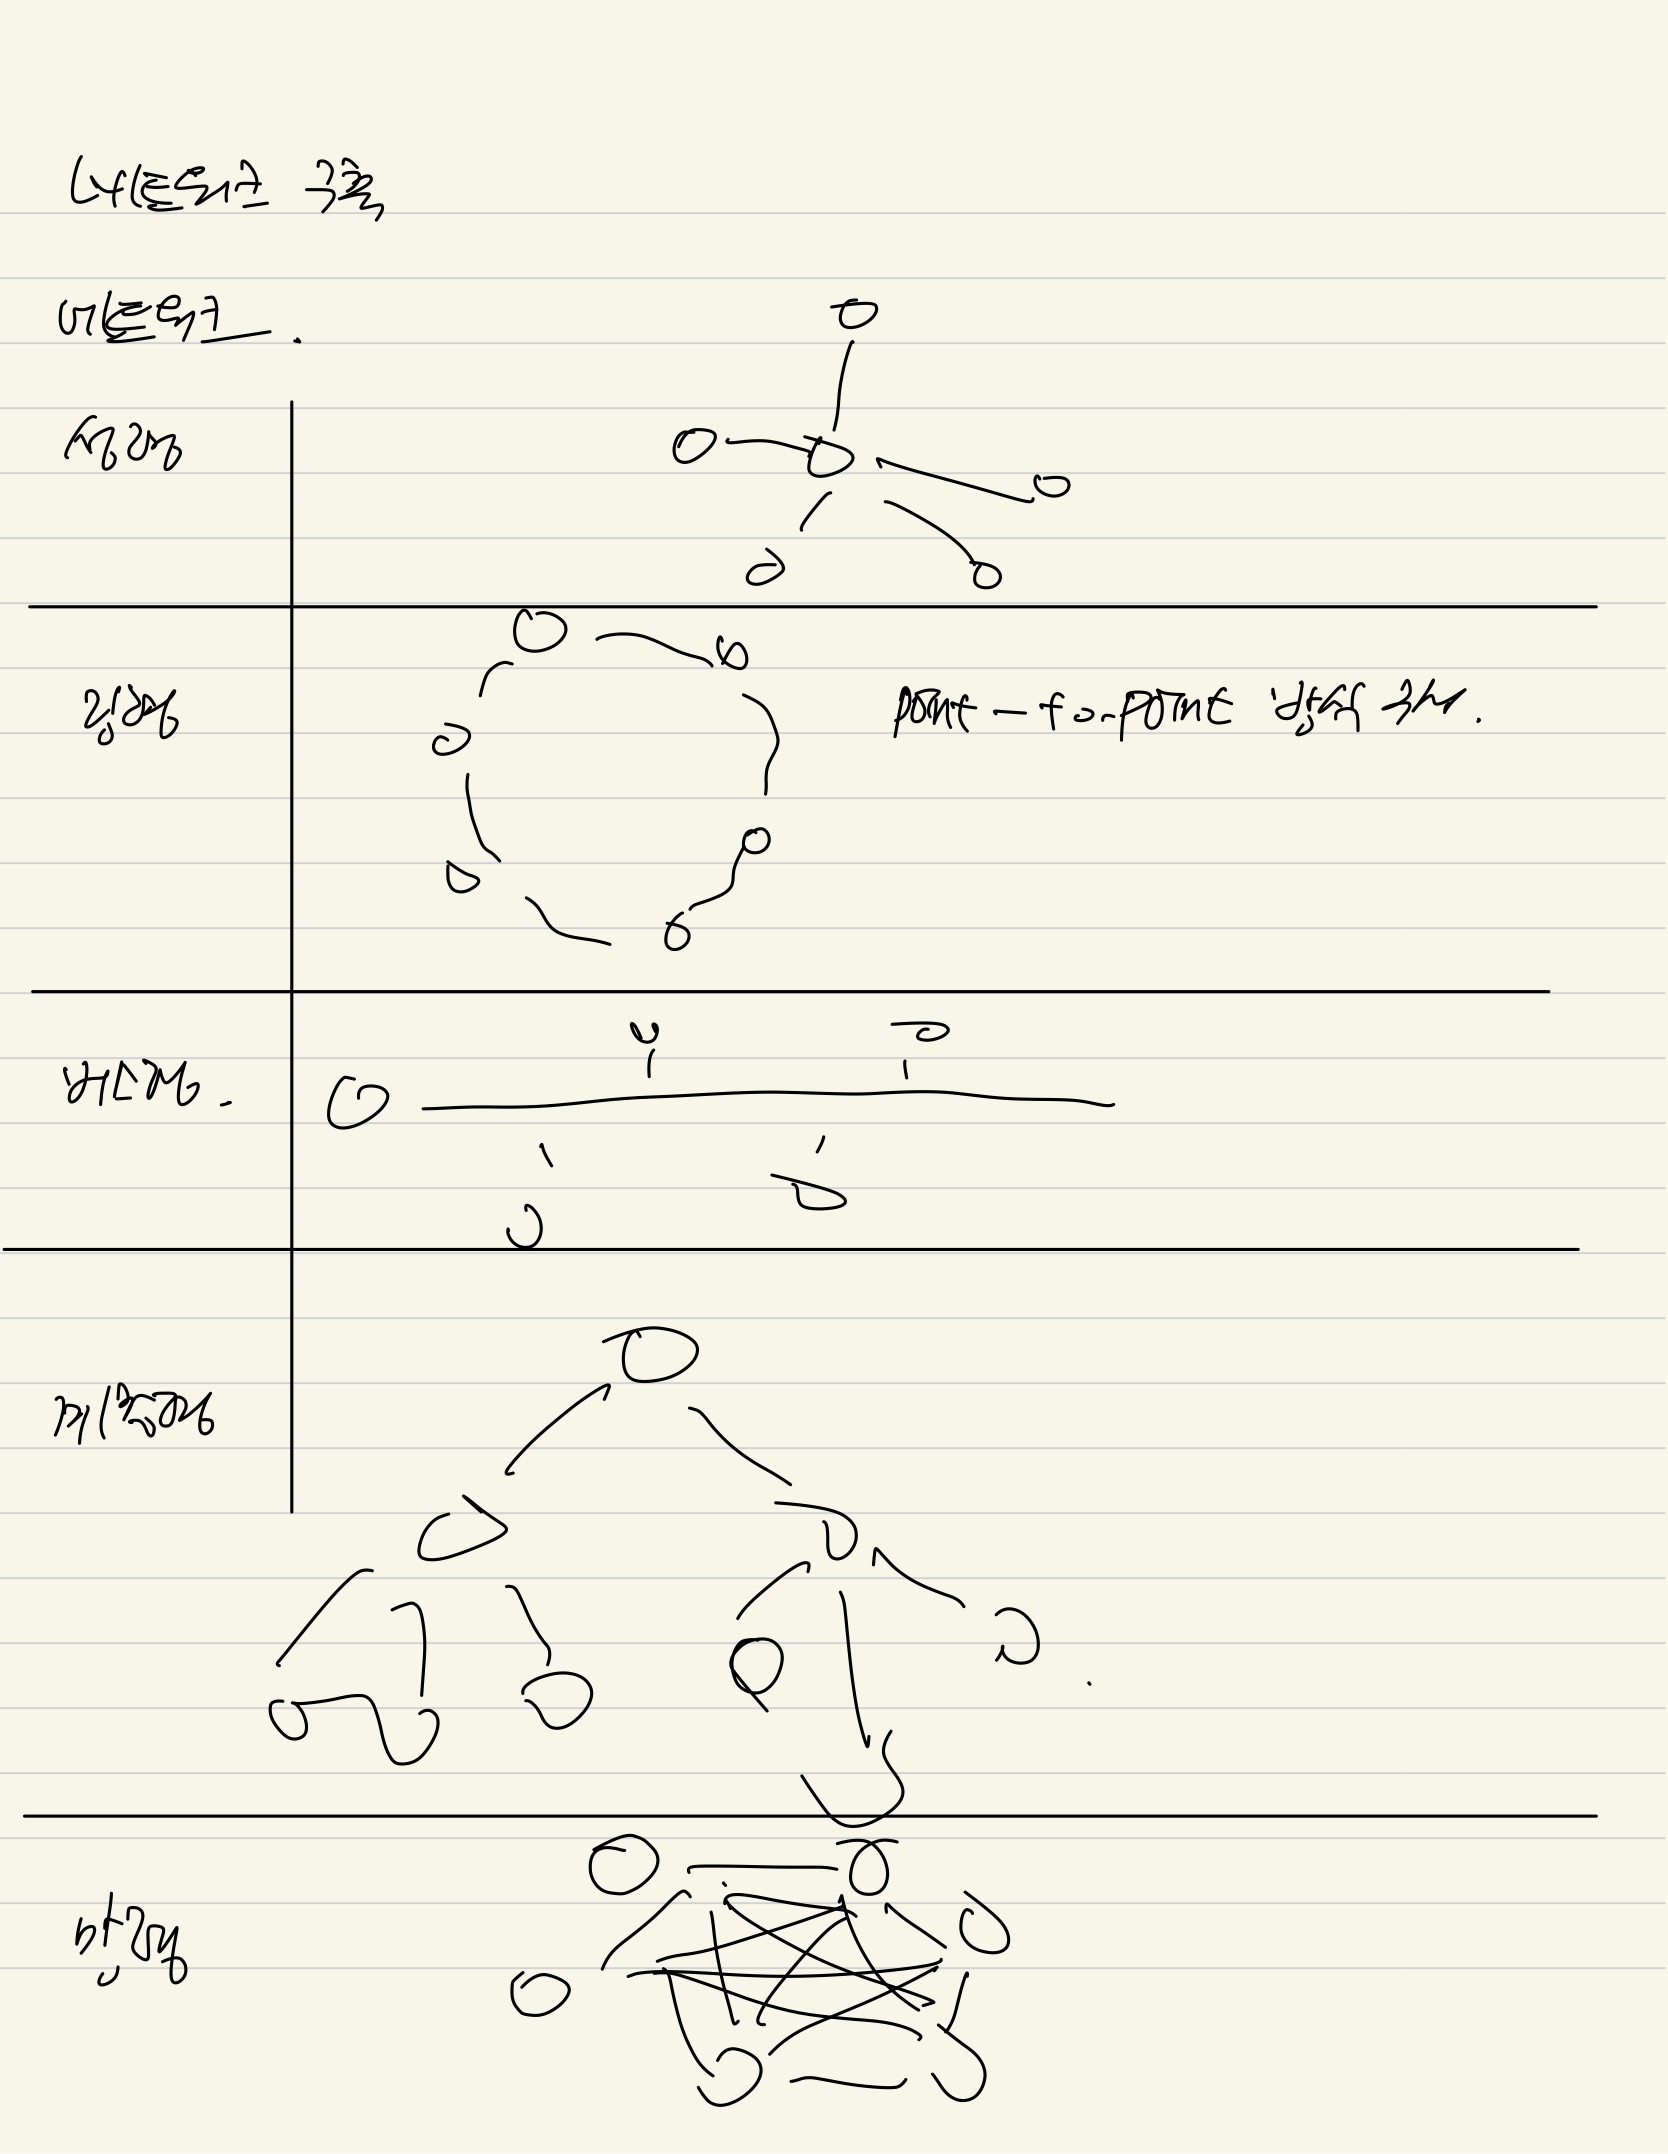 네트워크 구축
네트워크.
성형
링형
point-to-point 방식 구성.
버스형.
계층형
망형